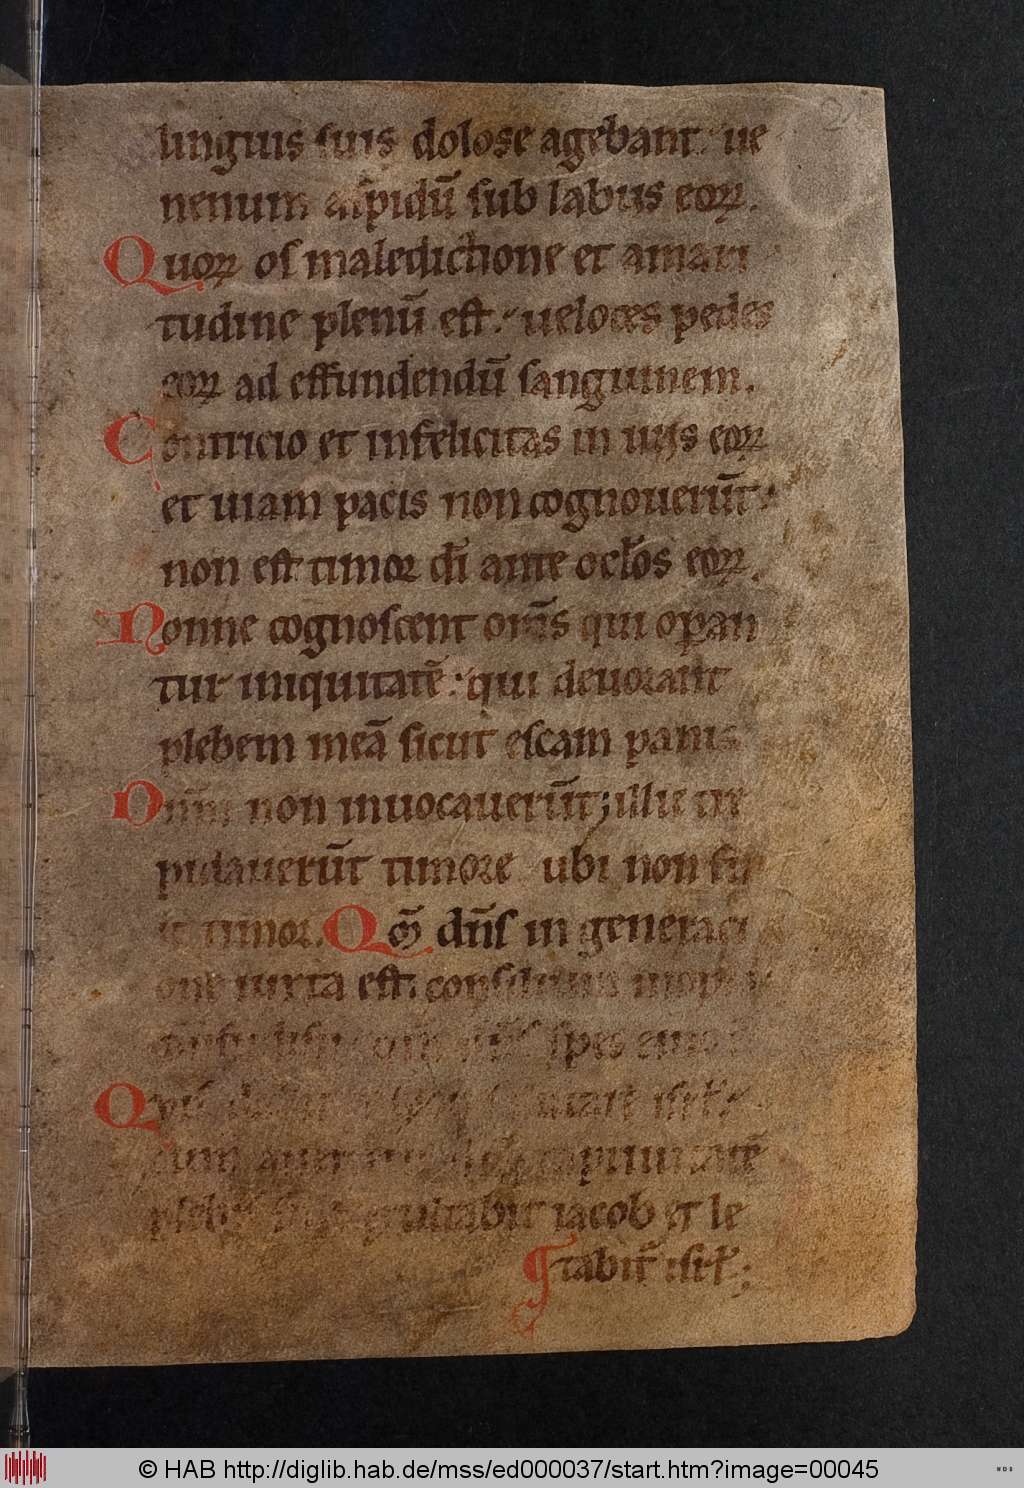 linguis suis dolose agebant: ue
nenum aspidū sub labiis eoꝝ.
Quoꝝ os maledictione et amari
tudine plenū est: ueloces pedes
eoꝝ ad effundendū sanguinem.
Contricio et infelicitas in uiis eoꝝ
et uiam pacis non cognouerūt:
non est timor dī ante ocl̄os eoꝝ.
Nonne cognoscent om̄s qui oꝑan
tur iniquitatē: qui deuorant
plebem meā sicut escam panis
Dn̄m non inuocauerūt; illic tre
pidauerūt timore ubi non fu
it timor. Qm̄ dn̄s in generaci
one iusta est: consilium inopis
spes eius
Quis isrl̄:
cum captiuitatē
plebis exultabit iacob et le
tabit᷑ isrl̄;
© HAB http://diglib.hab.de/mss/ed000037/start.htm?image=00045